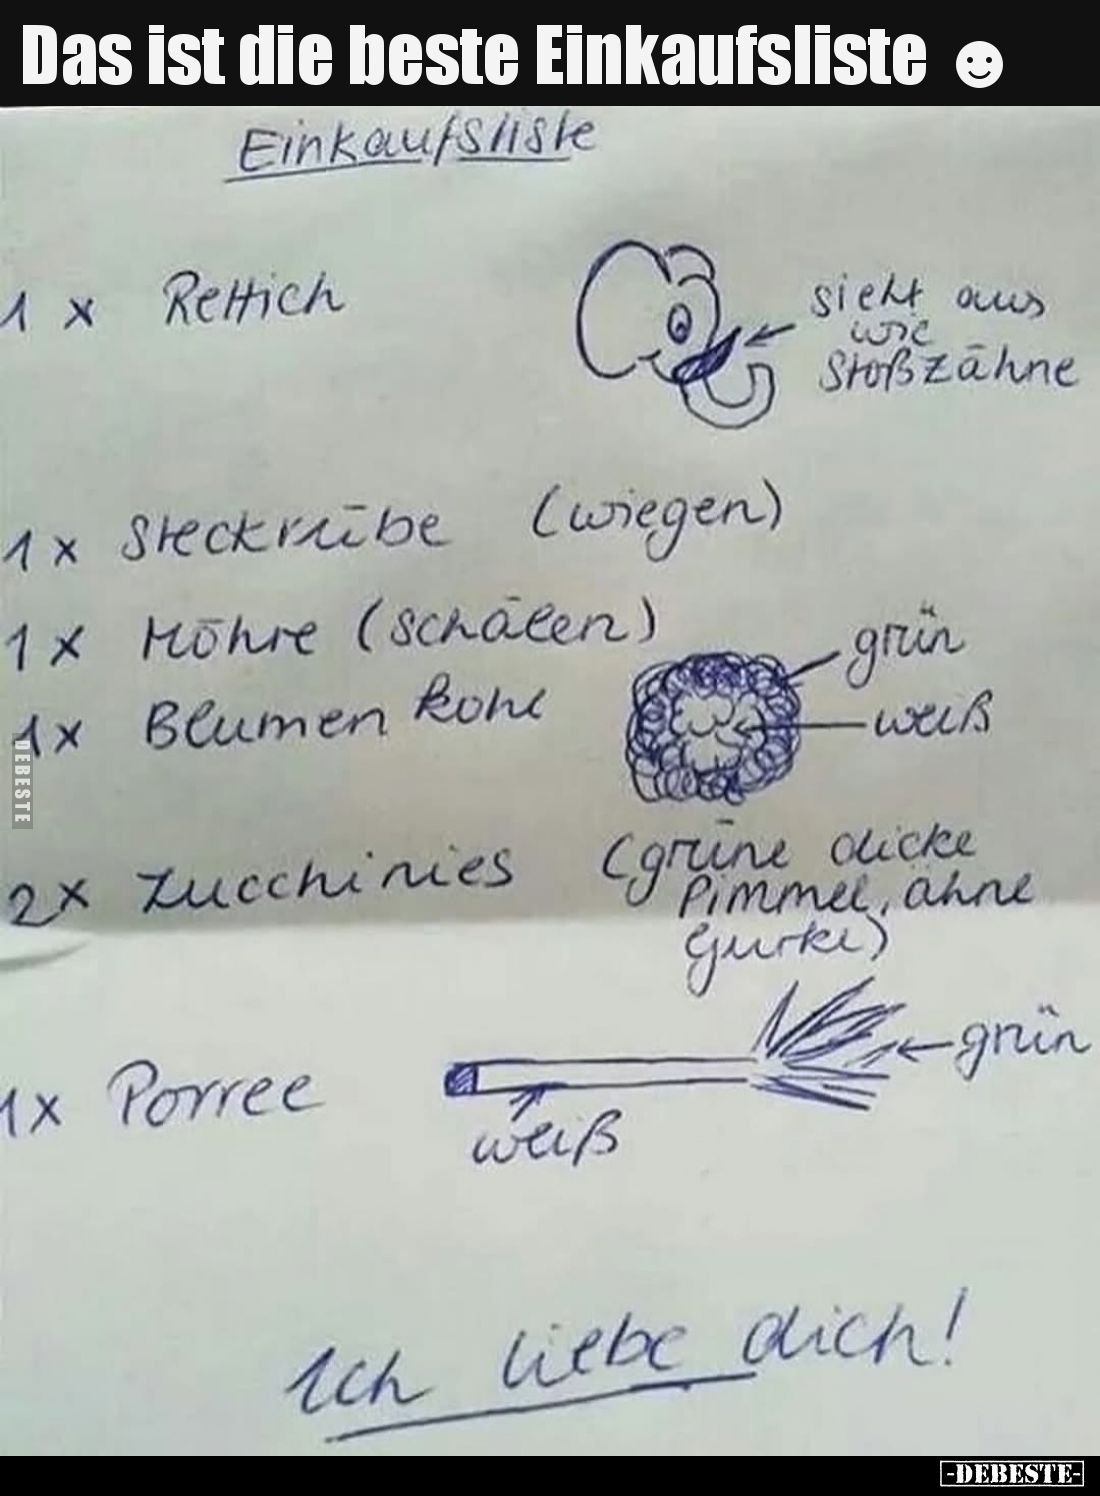 Das ist die beste Einkaufsliste ☻
Einkaufsliste
1 x Rettich
sieht aus
wie
Stoßzähne
1 x Steckrübe (wiegen)
1 x Möhre (schälen)
1 x Blumenkohl
grün
weiß
2x Zucchinies (grüne dicke
Pimmel, ähnl
Gurke)
1x Porree
grün
weiß
Ich liebe dich!
DEBESTE
-DEBESTE-